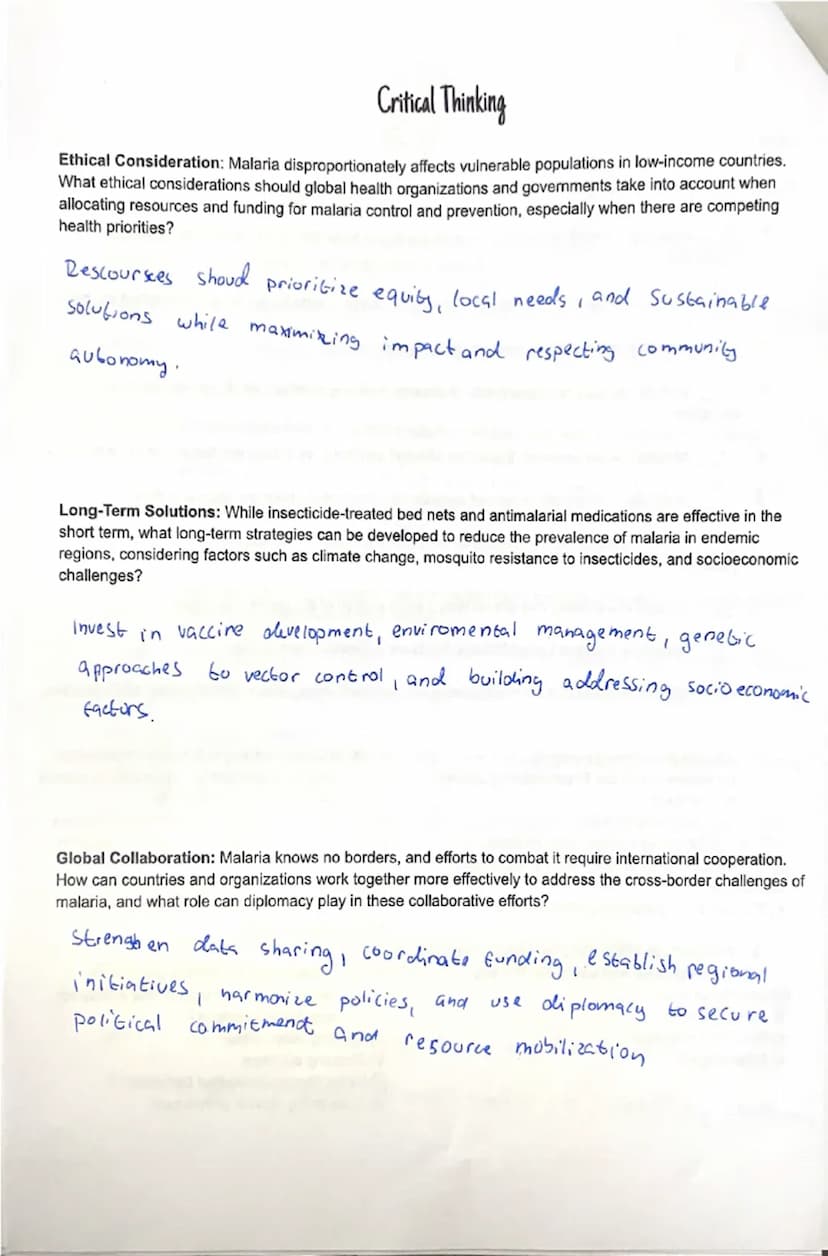 Critical Thinking
Ethical Consideration: Malaria disproportionately affects vulnerable populations in low-income countries.
What ethical considerations should global health organizations and governments take into account when
allocating resources and funding for malaria control and prevention, especially when there are competing
health priorities?
Rescourses shoud prioritize equity, local needs, and sustainable
solutions while maximizing impact and respecting community
autonomy.
Long-Term Solutions: While insecticide-treated bed nets and antimalarial medications are effective in the
short term, what long-term strategies can be developed to reduce the prevalence of malaria in endemic
regions, considering factors such as climate change, mosquito resistance to insecticides, and socioeconomic
challenges?
Invest in vaccine development, enviromental management, genetic
approaches to vector control, and building addressing socioeconomic
factors.
Global Collaboration: Malaria knows no borders, and efforts to combat it require international cooperation.
How can countries and organizations work together more effectively to address the cross-border challenges of
malaria, and what role can diplomacy play in these collaborative efforts?
Strengh en data sharing, coordinate funding, establish regional
initiatives, harmonize policies, and use diplomacy to secure
political commitment and resource mobilization